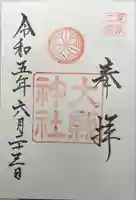 奉拝
大縣神社
令和五年六月二十三日